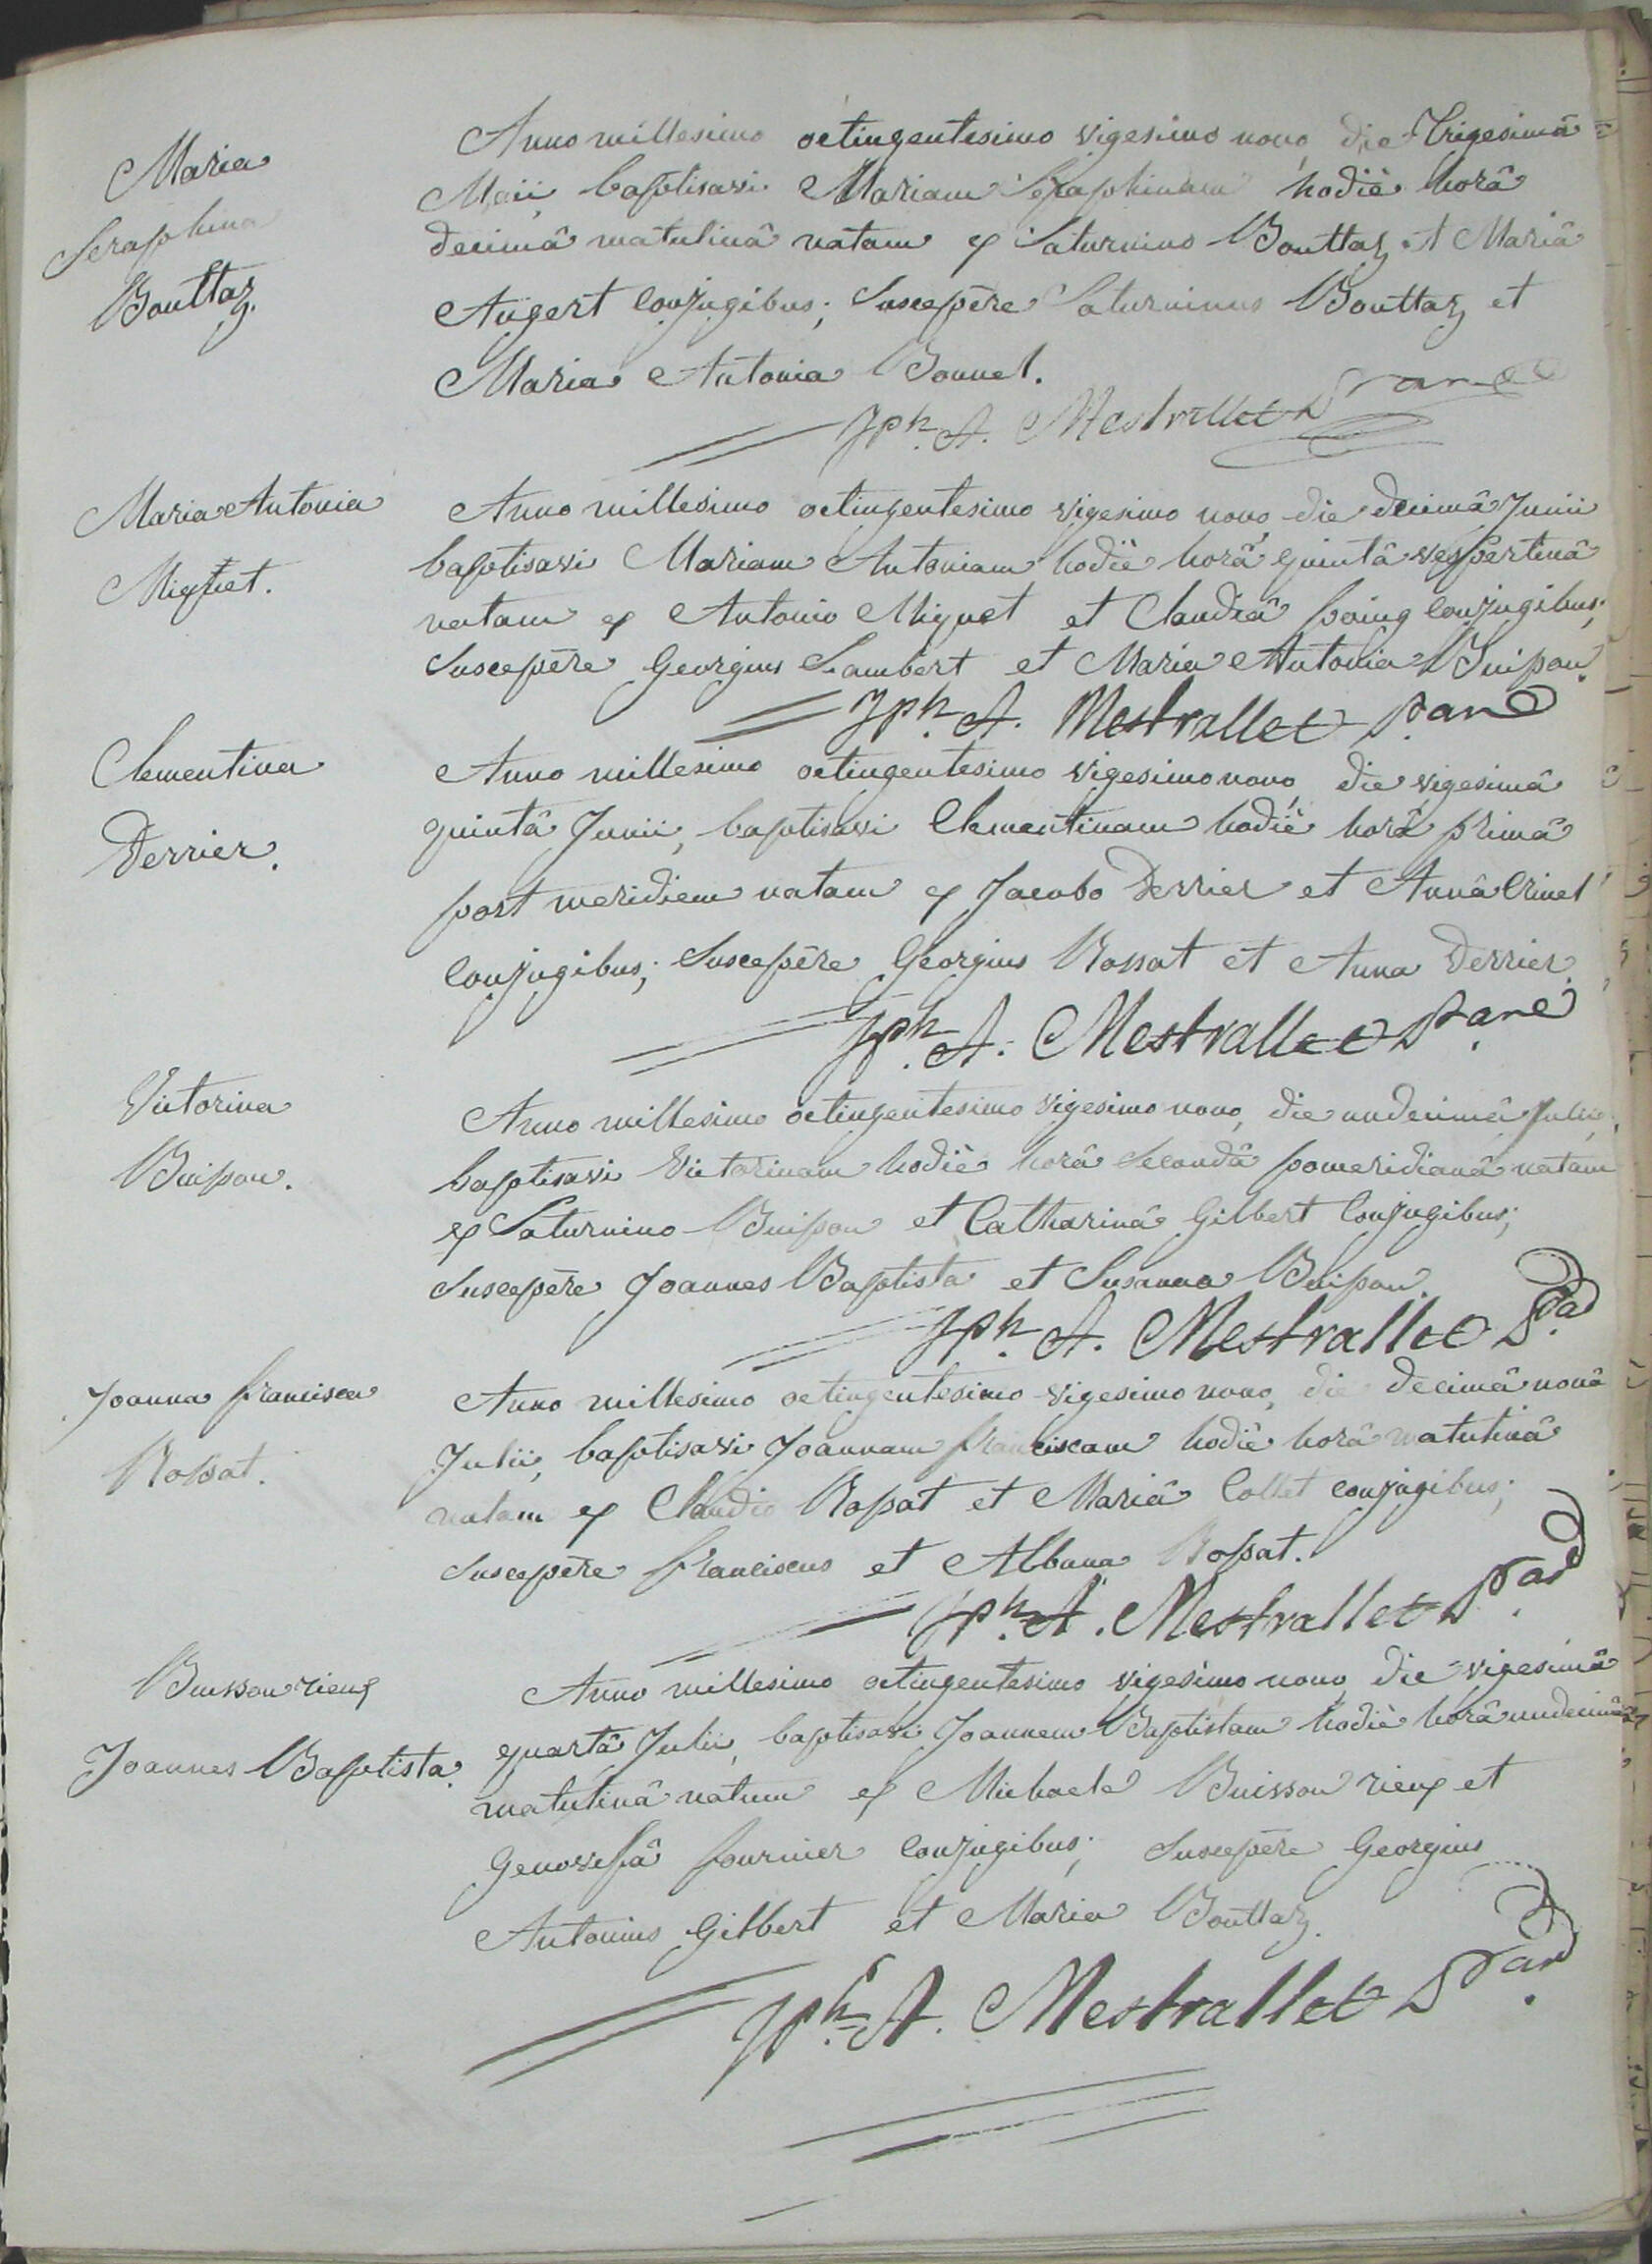 Maria
Seraphina
Bouttaz.
Anno millesimo octingentesimo vigesimo nono, die Trigesimâ
Maii, baptisavi Mariam Seraphinam hodiè horâ
decimâ matutinâ natam ex Saturnino Bouttaz et Mariâ
Augert conjugibus; Suscepêre Saturninus Bouttaz et
Maria Antonia Bonnel.
Jph. A. Mestrallet
Maria Antonia
Miquet.
Anno millesimo octingentesimo vigesimo nono die decimâ Junii
baptisavi Mariam Antoniam hodiè horâ quintâ vespertinâ
natam ex Antonio Miquet et Claudiâ poing conjugibus;
Suscepêre Georgius Lambert et Maria Antonia Buisson.
Jph. A. Mestrallet
Clementina
Derrier.
Anno millesimo octingentesimo vigesimo nono, die vigesimâ
quintâ Junii, baptisavi Clementinam hodiè horâ primâ
post meridiem natam ex Jacobo Derrier et Annâ Crinel
conjugibus; Suscepêre Georgius Rossat et Anna Derrier.
Jph. A. Mestrallet
Victorina
Buisson.
Anno millesimo octingentesimo vigesimo nono, die undecimâ Julii,
baptisavi Victorinam hodiè horâ Secondâ pomeridianâ natam
ex Saturnino Buisson et Catharinâ Gilbert conjugibus;
Suscepêre Joannes Baptista et Susanna Buisson.
Jph. A. Mestrallet
Joanna francisca
Rossat.
Anno millesimo octingentesimo vigesimo nono, die decimâ nonâ
Julii, baptisavi Joannam franciscam hodiè horâ matutinâ
natam ex Claudio Rossat et Mariâ Collet conjugibus;
Suscepêre franciscus et Albana Rossat.
Jph. A. Mestrallet
Buisson rieux
Joannes Baptista.
Anno millesimo octingentesimo vigesimo nono, die vigesimâ
quartâ Julii, baptisavi Joannem Baptistam hodiè horâ undecimâ
matutinâ natum ex Michaele Buisson rieux et
Genovefâ fournier conjugibus; Suscepêre Georgius
Antonius Gilbert et Maria Bouttaz.
Jph. A. Mestrallet